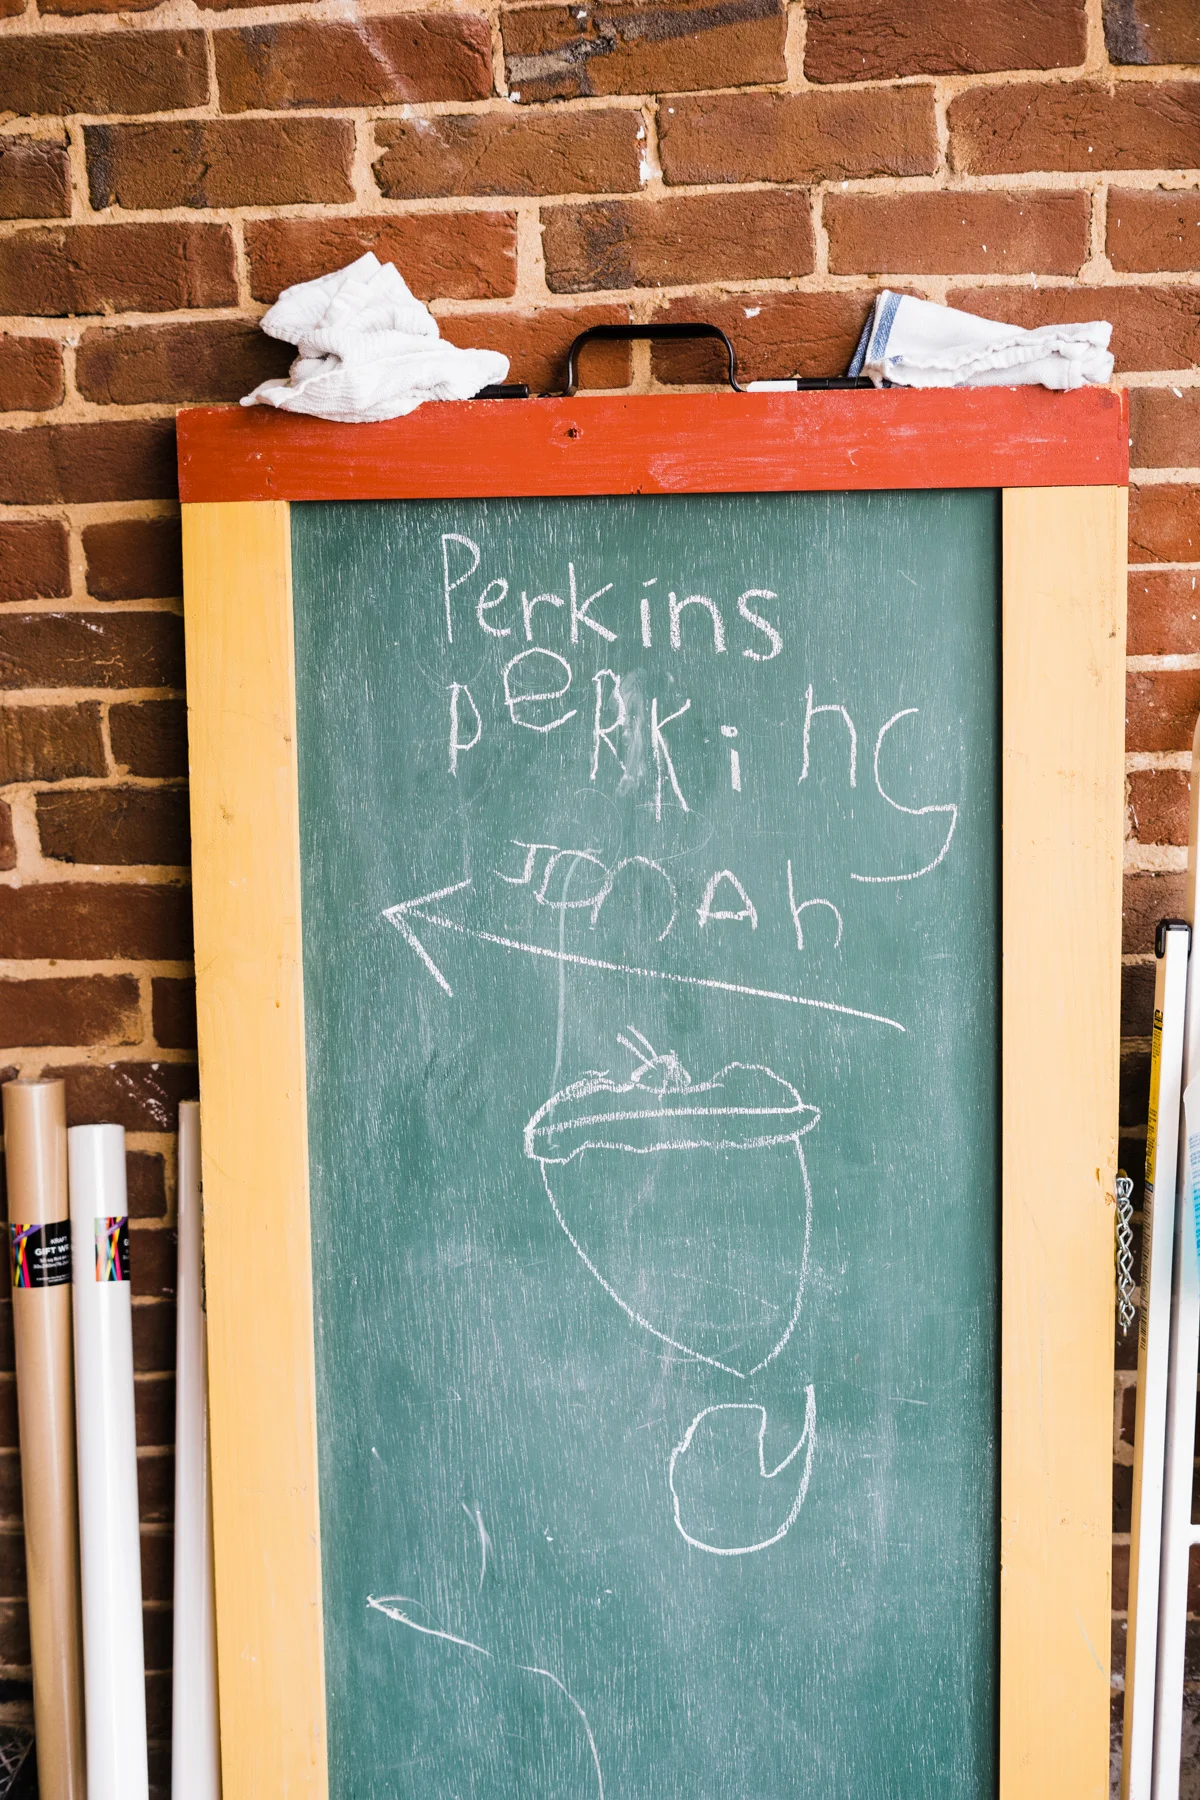 Perkins
PeRKins
JonAh
KRAFT
GIFT W